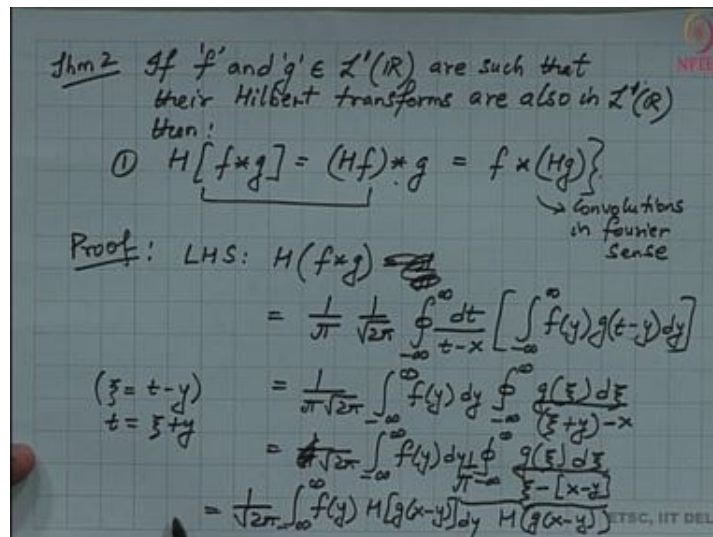 Thm 2 If 'f' and 'g' ∈ L'(ℝ) are such that
their Hilbert transforms are also in L'(ℝ)
then:
① H[f*g] = (Hf)*g = f*(Hg)}
→ Convolutions
in fourier
sense
Proof: LHS: H(f*g)
= 1/π 1/√2π ∮_{-∞}^{∞} dt/(t-x) [∫_{-∞}^{∞} f(y) g(t-y) dy]
(ξ = t-y)
t = ξ+y
= 1/(π√2π) ∫_{-∞}^{∞} f(y) dy ∮_{-∞}^{∞} g(ξ) dξ/((ξ+y)-x)
= 1/√2π ∫_{-∞}^{∞} f(y) dy 1/π ∮_{-∞}^{∞} g(ξ) dξ/(ξ-[x-y])
= 1/√2π ∫_{-∞}^{∞} f(y) H[g(x-y)] dy H(g(x-y))
NPTEL
ETSC, IIT DEL